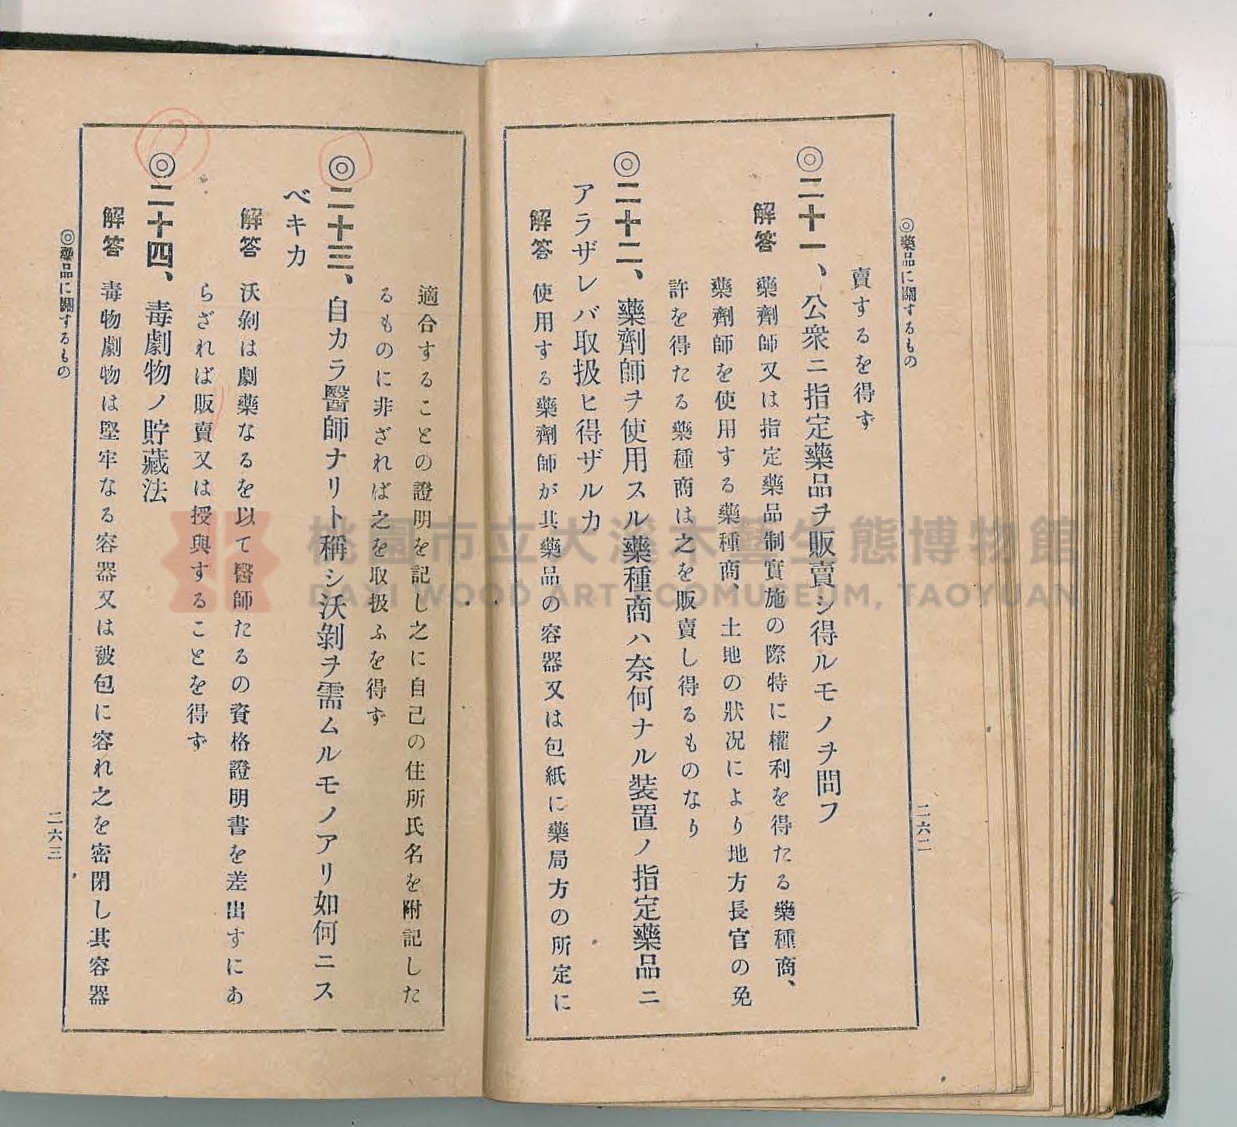 ◎藥品に關するもの
二六二
賣するを得ず
◎二十一、公衆ニ指定藥品ヲ販賣シ得ルモノヲ問フ
解答 藥劑師又は指定藥品制實施の際特に權利を得たる藥種商、
藥劑師を使用する藥種商、土地の狀况により地方長官の免
許を得たる藥種商は之を販賣し得るものなり
◎二十二、藥劑師ヲ使用スル藥種商ハ奈何ナル裝置ノ指定藥品ニ
アラザレバ取扱ヒ得ザルカ
解答 使用する藥劑師が其藥品の容器又は包紙に藥局方の所定に
適合することの證明を記し之に自己の住所氏名を附記した
るものに非ざれば之を取扱ふを得ず
◎二十三、自カラ醫師ナリト稱シ沃剝ヲ需ムルモノアリ如何ニス
ベキカ
解答 沃剝は劇藥なるを以て醫師たるの資格證明書を差出すにあ
らざれば販賣又は授與することを得ず
◎二十四、毒劇物ノ貯藏法
解答 毒物劇物は堅牢なる容器又は被包に容れ之を密閉し其容器
◎藥品に關するもの
二六三
桃園市立大溪木藝生態博物館
DAXI WOOD ART ECOMUSEUM, TAOYUAN